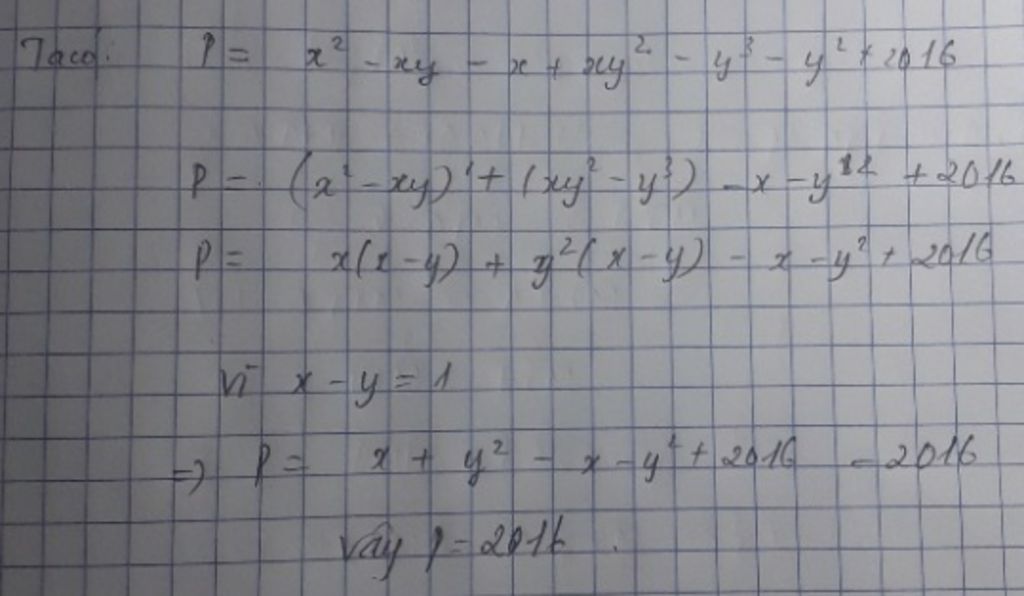 Ta có: P = x² - xy - x + xy² - y³ - y² + 2016
P = (x² - xy) + (xy² - y³) - x - y² + 2016
P = x(x - y) + y²(x - y) - x - y² + 2016
Vì x - y = 1
=> P = x + y² - x - y² + 2016 = 2016
Vậy P = 2016.